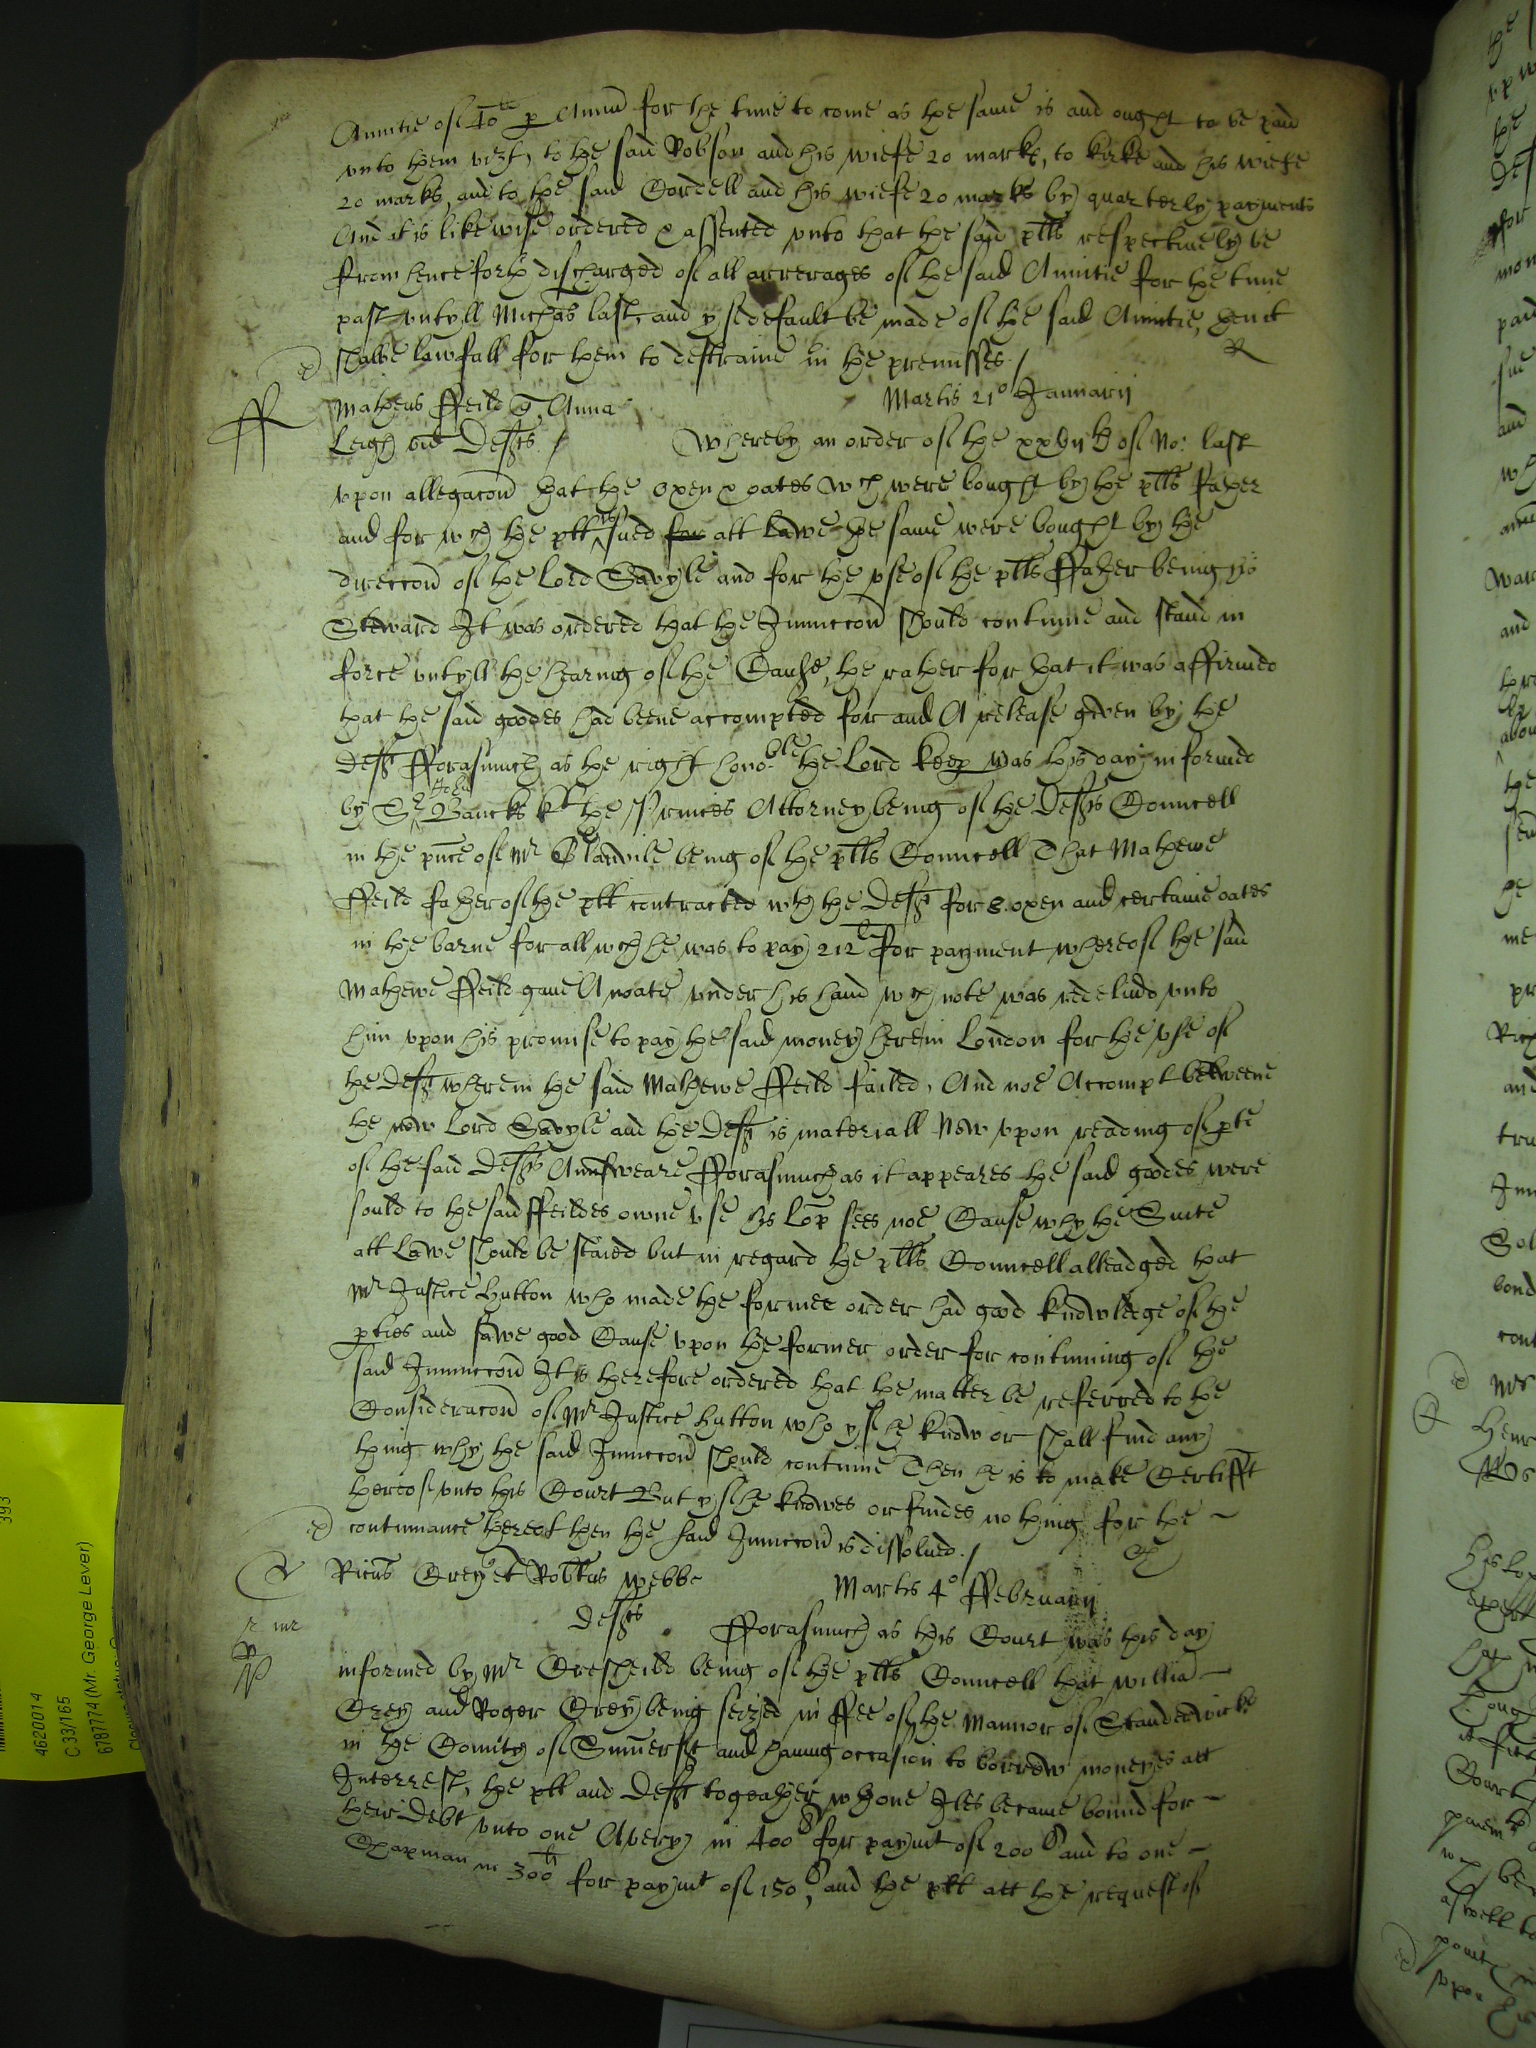 Annitie of 40li p Annu for the time to come as the same is and ought to be paid
vnto them vizt, to the said Robson and his wiefe 20 marks, to Kirke and his wiefe
20 marks, and to the said Cordell and his wiefe 20 marks by quarterly payments
And it is likewise ordered & assented vnto that the said pltfs respectiuely be
from henceforth discharged of all arrerages of the said Annitie for the time
past vntyll Michas last, and yf default be made of the said Annitie, then it
shalbe lawfull for them to destraine in the premisses /
R
Matheus Ffeild q Anna
Martis 21o Januarij
Leigh vid Defts /
Whereby an order of the xxvijth of No: last
vpon allegacon that the oxen & oates wch were bought by the pltfs father
and for wch the plt is sued for att Lawe the same were bought by the
direccon of the Lord Savyle and for the vse of the pltfs Ffather being his
Steward It was ordered that the Iniunccon should continue and stand in
force vntyll the hearing of the Cause, the rather for that it was affirmed
that the said goodes had beene accompted for and A release given by the
Deft Fforasmuch as the right hono:ble the Lord keep was this day informed
by Sr John Banckes kt the Princes Attorney being of the Defts Councell
in the pnce of Mr Glanvile being of the pltfs Councell That Mathewe
Ffeild father of the plt contracted wth the Deft for 8. oxen and certaine oates
in the barne for all wch he was to pay 212li for payment whereof the said
Mathewe Ffeild gaue A noate vnder his hand wch note was redeliud vnto
him vpon his promise to pay the said money here in London for the vse of
the Deft wherein the said Mathewe Ffeild failed, And noe Accompt betweene
the now Lord Savyle and the Deft is materiall Now vpon reading of pte
of the said Defts Annsweare Fforasmuch as it appeares the said goodes were
sould to the said Ffeildes owne vse his Lop sees noe Cause why the Suite
att Lawe should be staied but in regard the pltfs Councell alleadged that
Mr Justice Hutton who made the former order had good knowledge of the
pties and sawe good Cause vpon the former order for continuing of the
said Iniunccon It is therefore ordered that the matter be referred to the
Consideracon of Mr Justice Hutton who yf he know or shall find any
thing why the said Iniunccon should continue Then he is to make Certifft
thereof vnto this Court But yf he knowes or findes nothing for the
continuance thereof then the said Iniunccon is dissolued. /
Ricus Grey et Robtus Webbe
Martis 4o Ffebruarij
Defts
Fforasmuch as this Court was this day
informed by Mr Gresheild being of the pltfs Councell that Willia
Grey and Roger Grey being seized in Ffee of the Mannor of Standerwicke
in the County of Sumersett and having occasion to borrow moneyes att
Interrest, the plt and Deft togeather wth one Iles became bound for
their Debt vnto one Avery in 400li for paymt of 200li and to one
Chapman in 300li for paymt of 150li, and the plt att the request of
393
4620014
C 33/165
6787774 (Mr. George Lever)